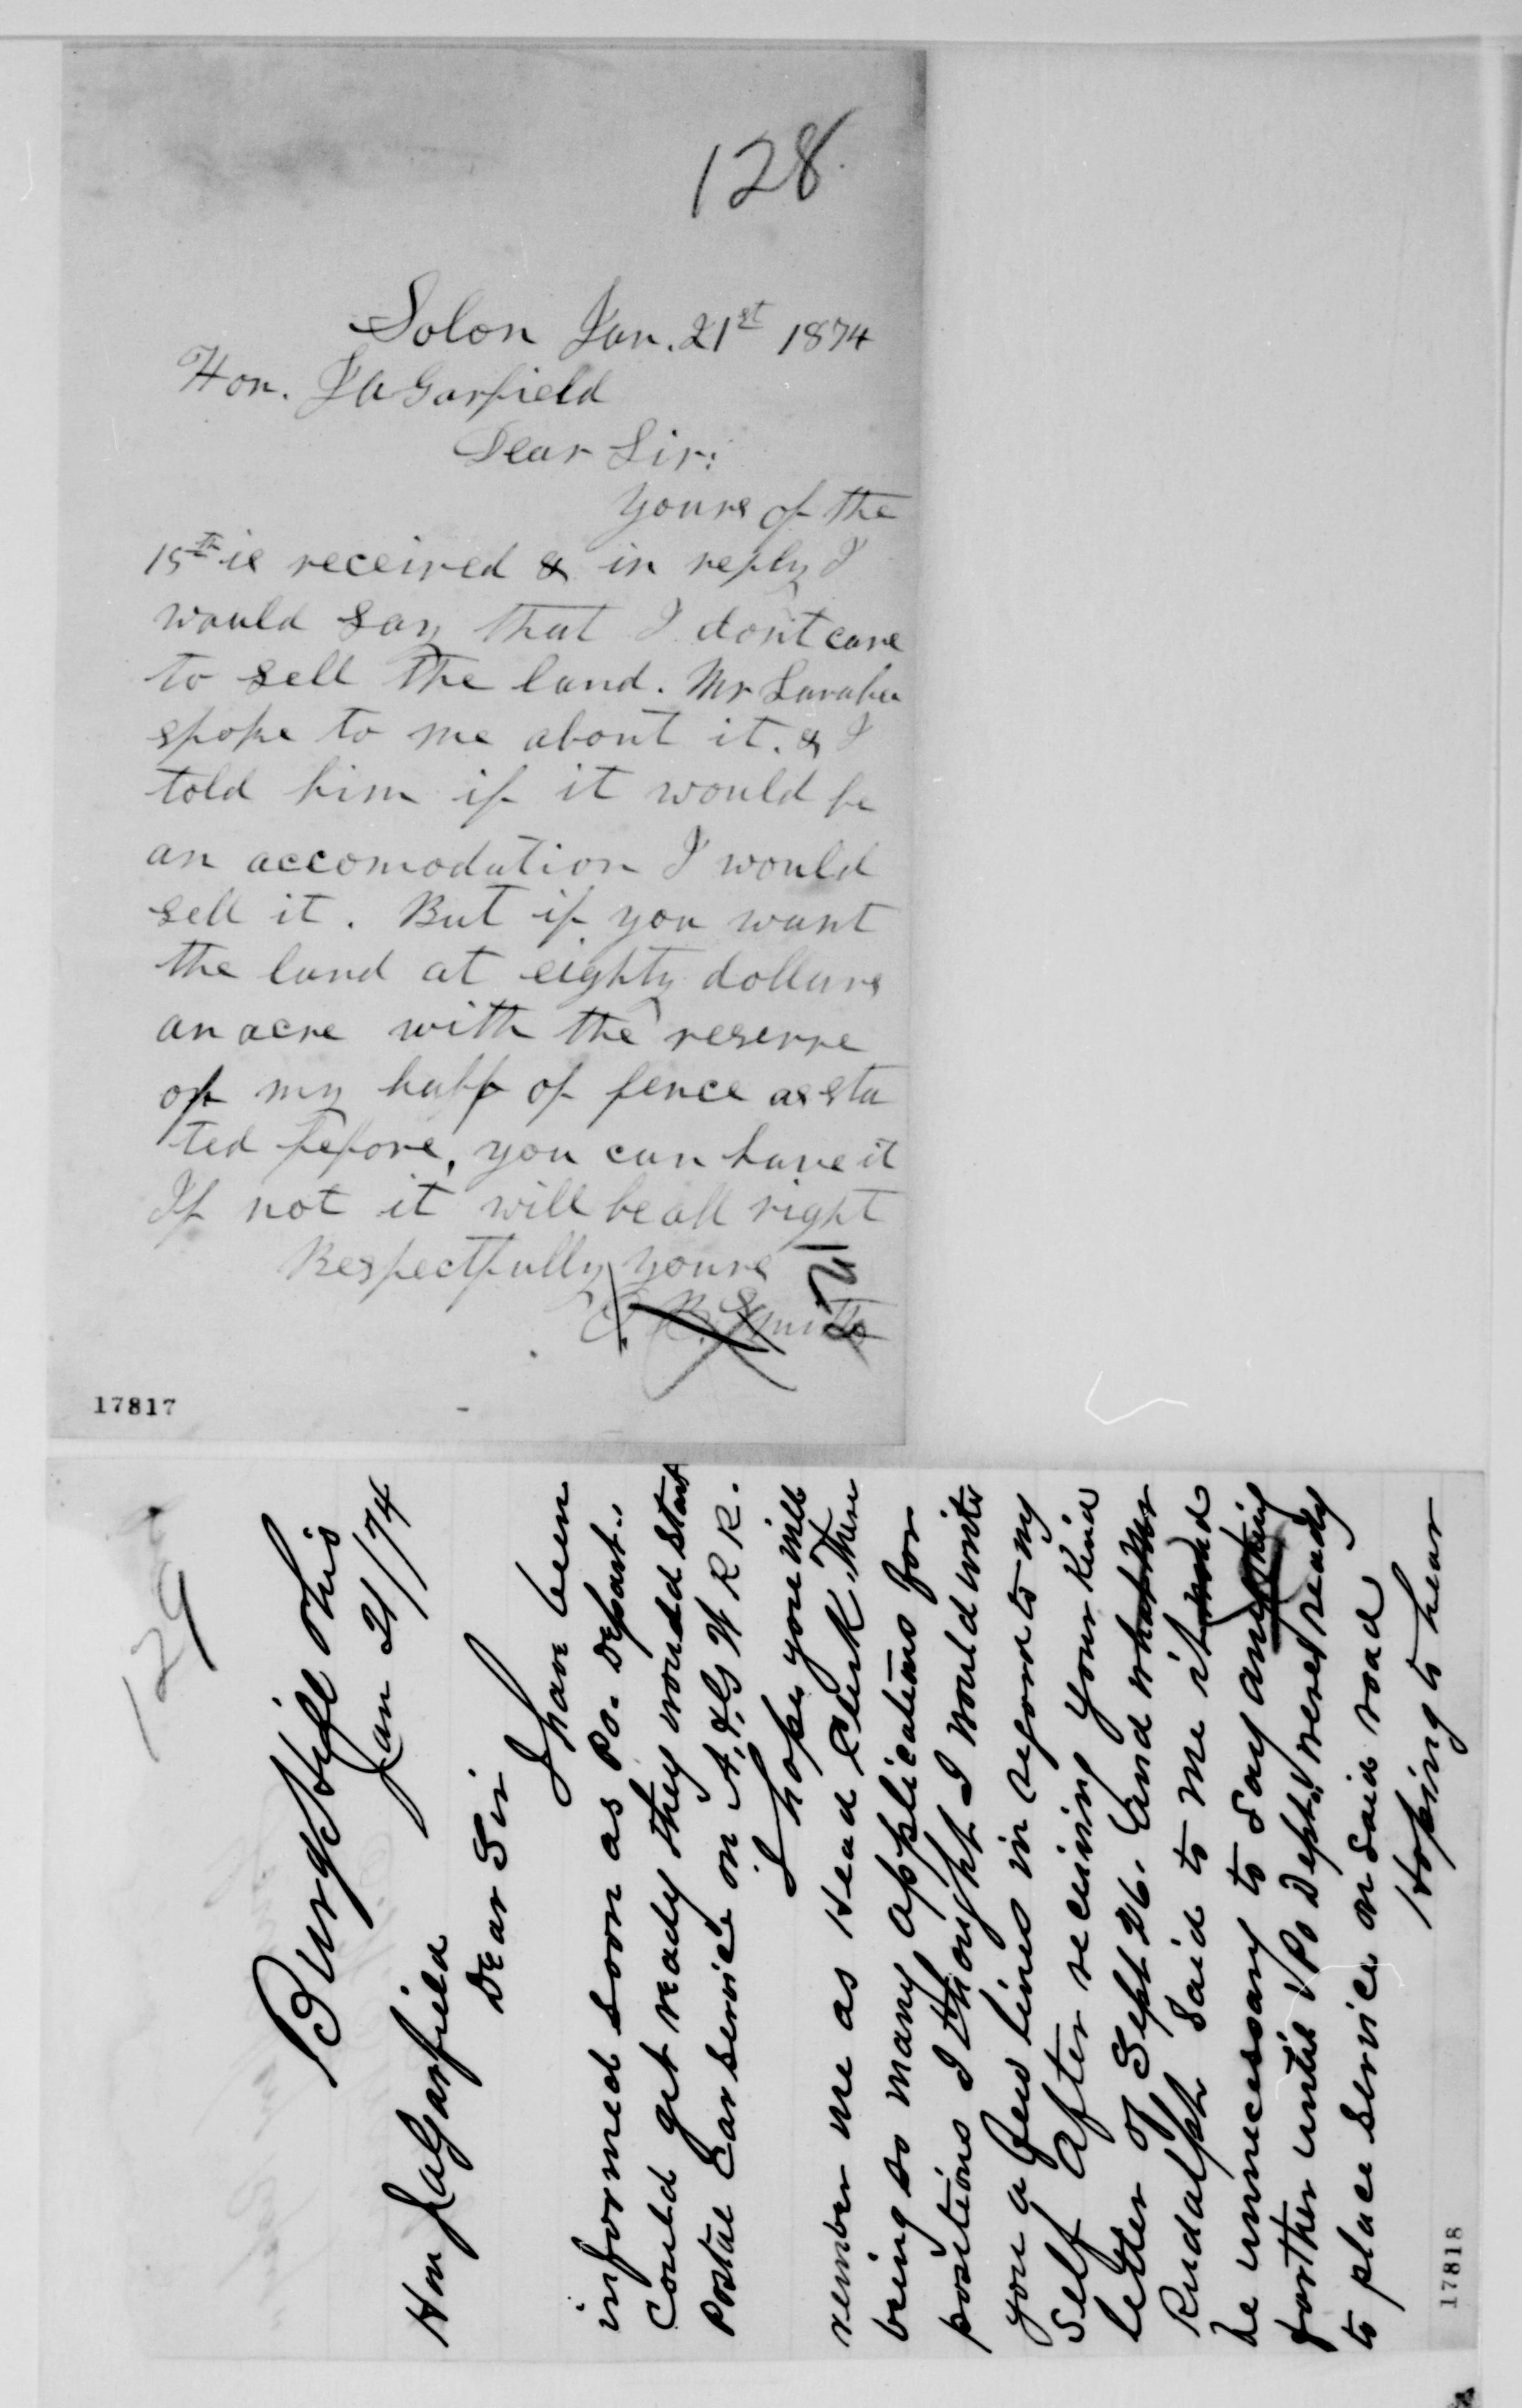 128
Solon Jan. 21st 1874
Hon. J A Garfield
Dear Sir:
Yours of the
15th is received & in reply I
would say that I don't care
to sell the land. Mr Laraber
spoke to me about it. & I
told him if it would be
an accomodation I would
sell it. But if you want
the land at eighty dollars
an acre with the reserve
of my half of fence as sta
ted before, you can have it
If not it will be all right
Respectfully yours
C. B. Smith
17817
129
Burg Hill Ohio
Jan 21/74
Hon J A Garfield
Dear Sir
I have been
informed soon as PO. Depart..
could get ready they would start
Postal Car service on A. & G W R R.
I hope you will
remember me as Head Clerk, There
being so many applications for
positions I thought I would write
you a few lines in regard to my
self After receiving your kind
letter of Sept 26. And
Rudalph said to me it
be unnecessary to say anything
further until PO Dept. were ready
to place service on said road
Hoping to hear
17818